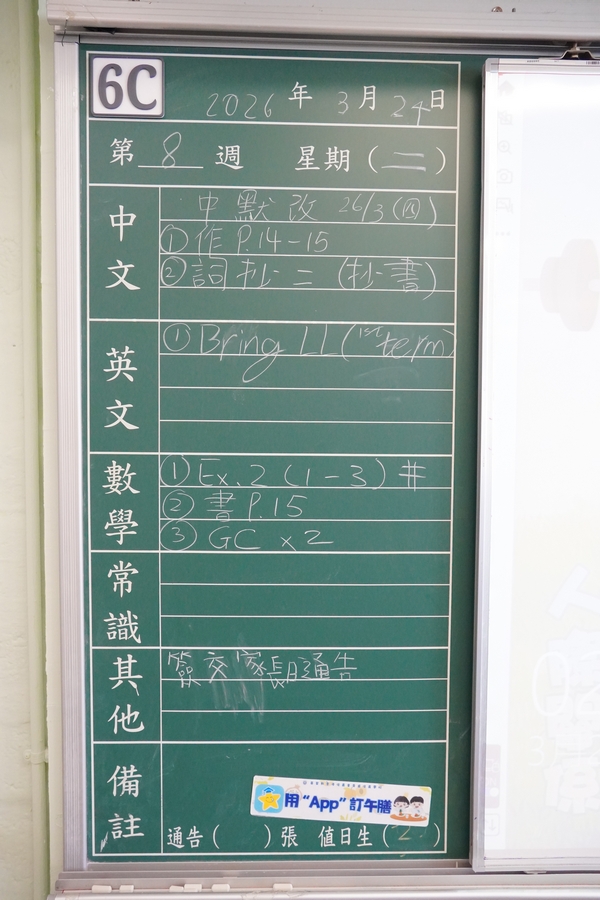 6C
2026 年 3 月 24 日
第 8 週 星期 (二)
中文
中 默 改 26/3 (四)
① 作 P.14-15
② 詞 抄 二 (抄書)
英文
① Bring LL (1st term)
數學
① Ex. 2 (1-3) #
② 書 P.15
③ GC x2
常識
其他
簽交家長通告
備註
用“App”訂午膳
通告 ( ) 張 值日生 ( 2 )